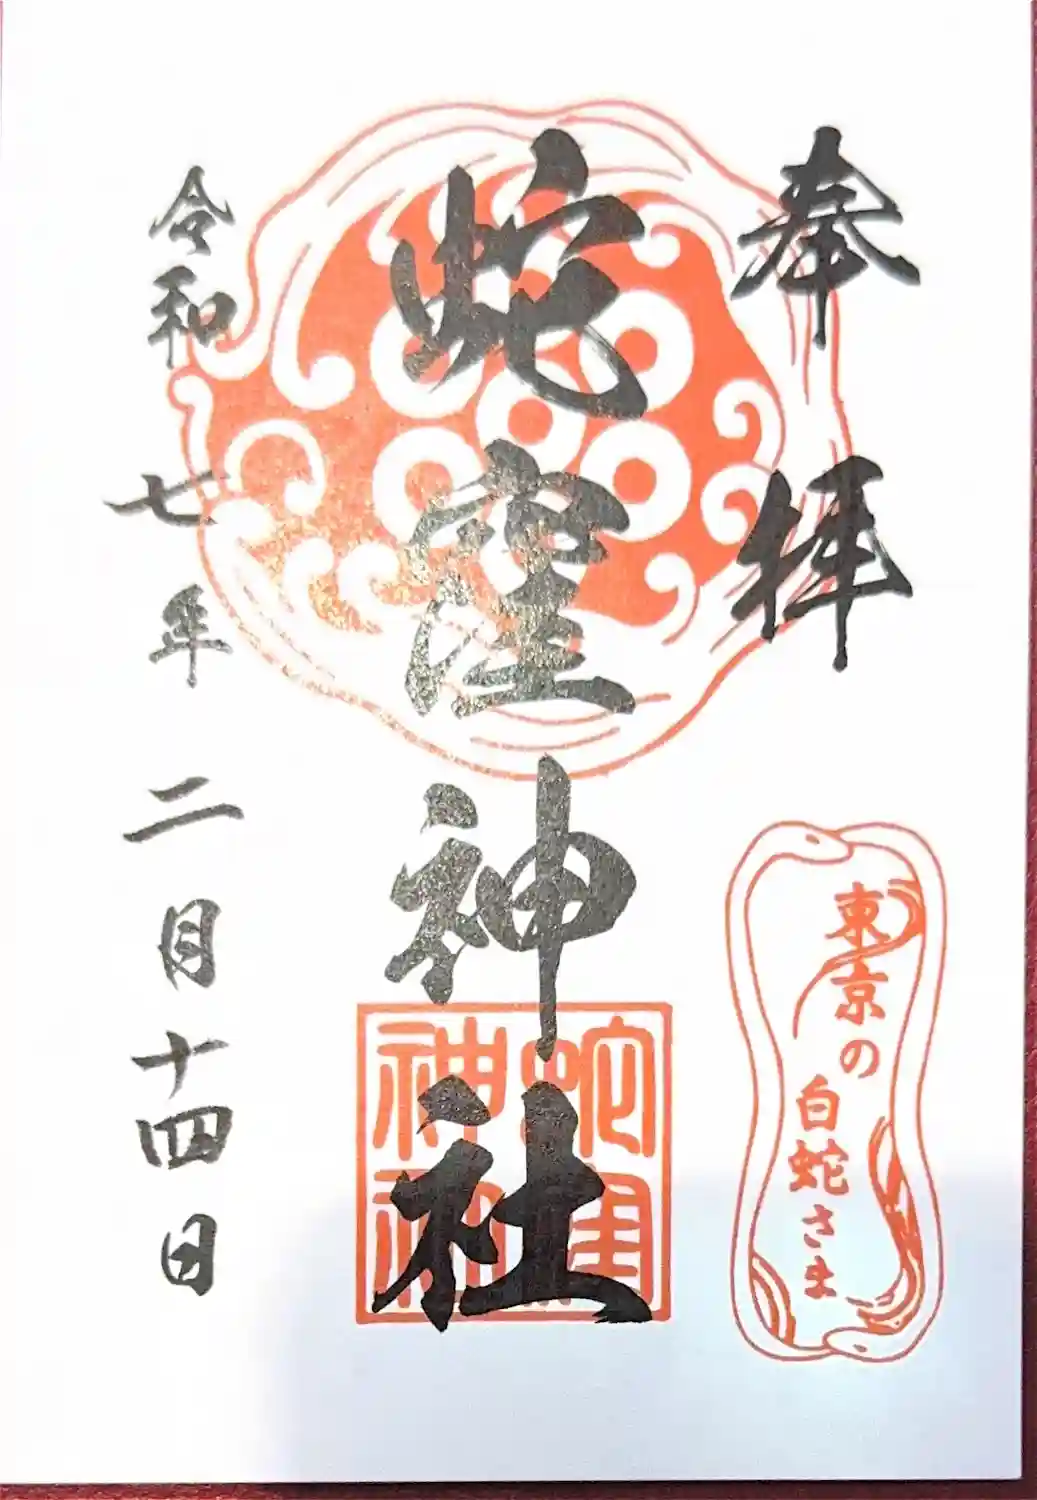 奉拝
蛇窪神社
令和七年二月十四日
東京の
白蛇さま